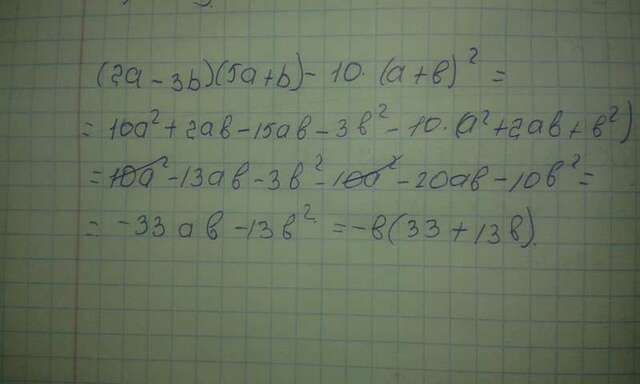 (2a - 3b)(5a + b) - 10 · (a + b)² =
= 10a² + 2ab - 15ab - 3b² - 10 · (a² + 2ab + b²)
= 10a² - 13ab - 3b² - 10a² - 20ab - 10b² =
= -33ab - 13b² = -b(33 + 13b).